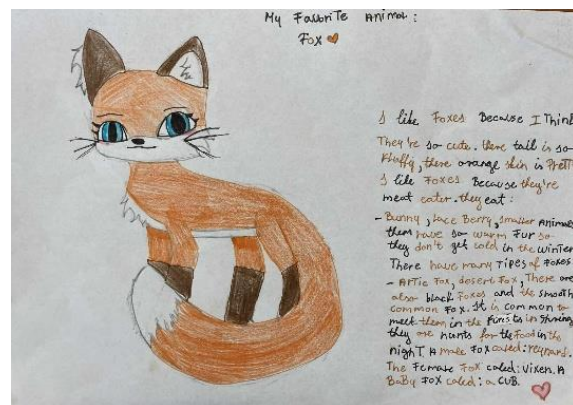 My Favorite Animal:
Fox
I like Foxes Because I Think
They're so cute. there tail is so
fluffy, there orange skin is Pretty
I like Foxes Because they're
meat eater. they eat:
- Bunny, Berry, smaller Animals
them have so warm Fur so
they don't get cold in the winter
There have many Tipes of Foxes
- Artic Fox, desert Fox, There are
also black Foxes and the smooth
common Fox. It is common to
meet them in the in
they are hants for the Food in the
nighT. A male Fox caled: reynard.
The Female Fox caled: Vixen. A
BaBy Fox caled: a CUB.